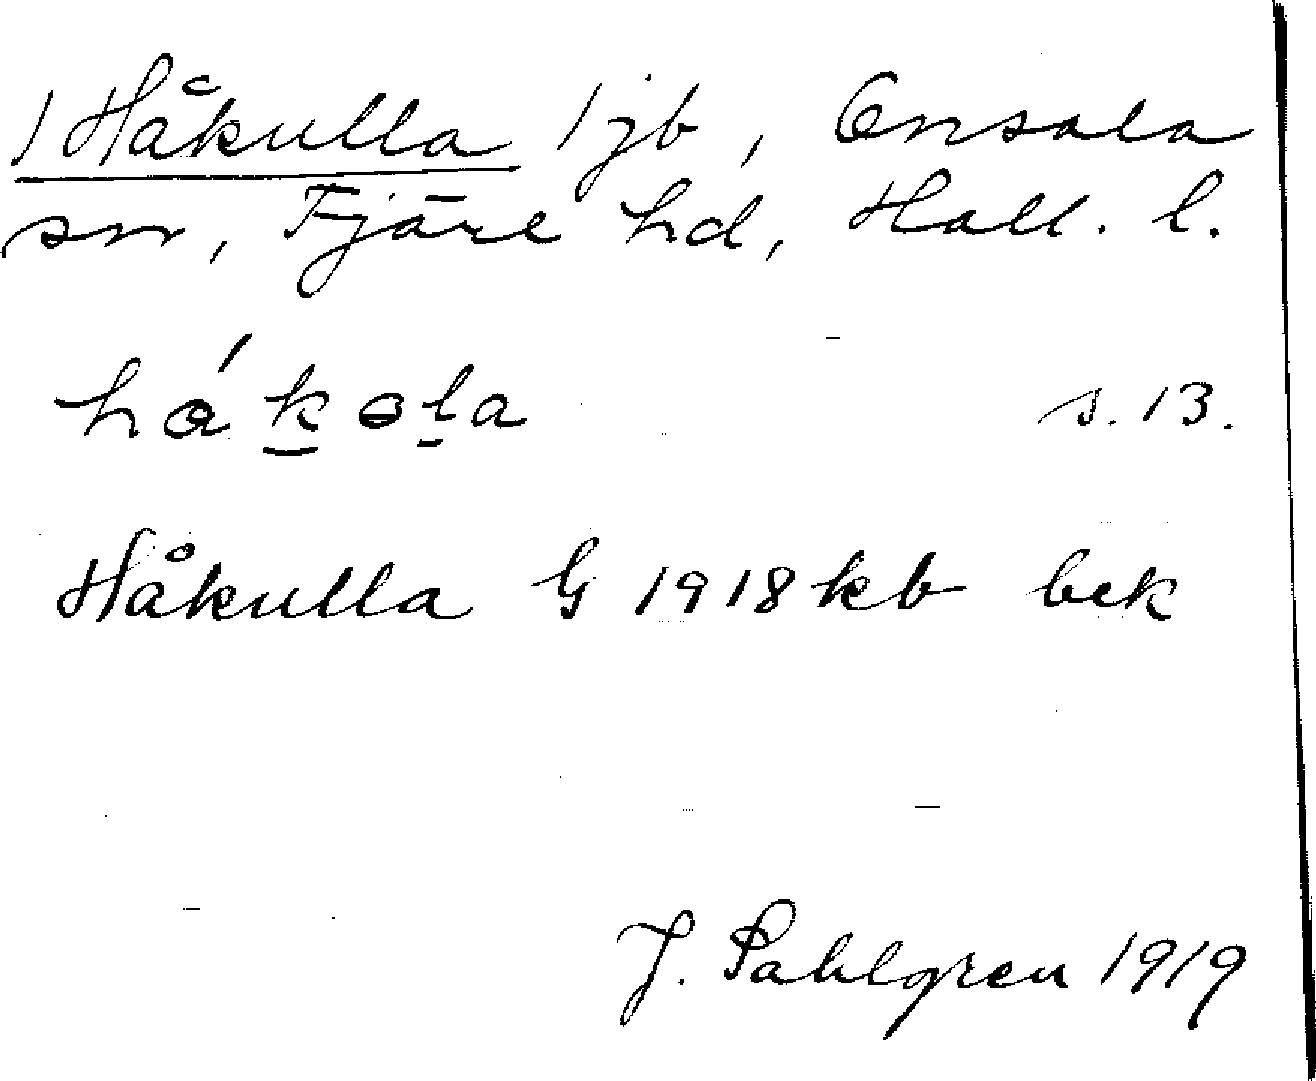 1 Håkulla 1 jb, Onsala
sn, Fjäre hd, Hall. l.
hákola s. 13.
Håkulla G 1918 kb bek
J. Sahlgren 1919